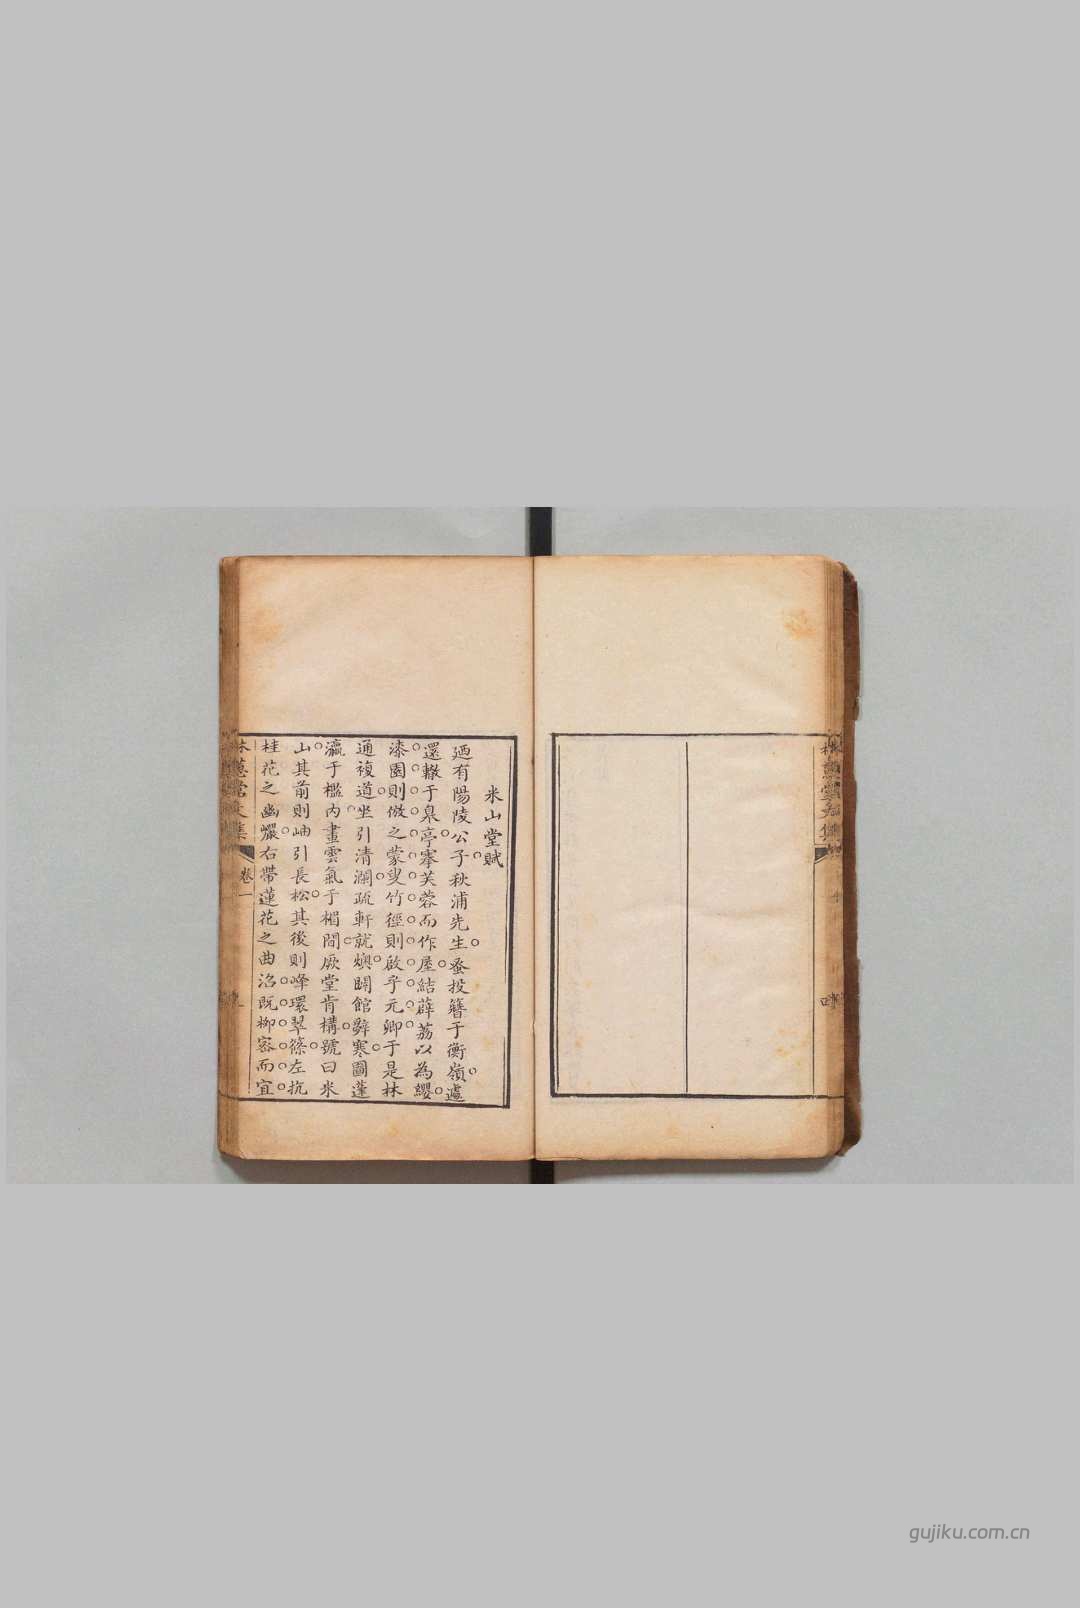 米山堂賦
迺有陽陵公子秋浦先生蚤投簪于衡嶺遽
還轍于臯亭搴芙蓉而作屋結薜荔以為纓
漆園則倣之蒙叟竹徑則啟乎元卿于是林
通複道坐引清瀾疏軒就燠闢館辭寒圖蓬
瀛于檻內畫雲氣于楣間厥堂肯構號曰米
山其前則岫引長松其後則峰環翠篠左抗
桂花之幽巘右帶蓮花之曲沼既柳密而宜
林蕙堂文集
卷一
gujiku.com.cn